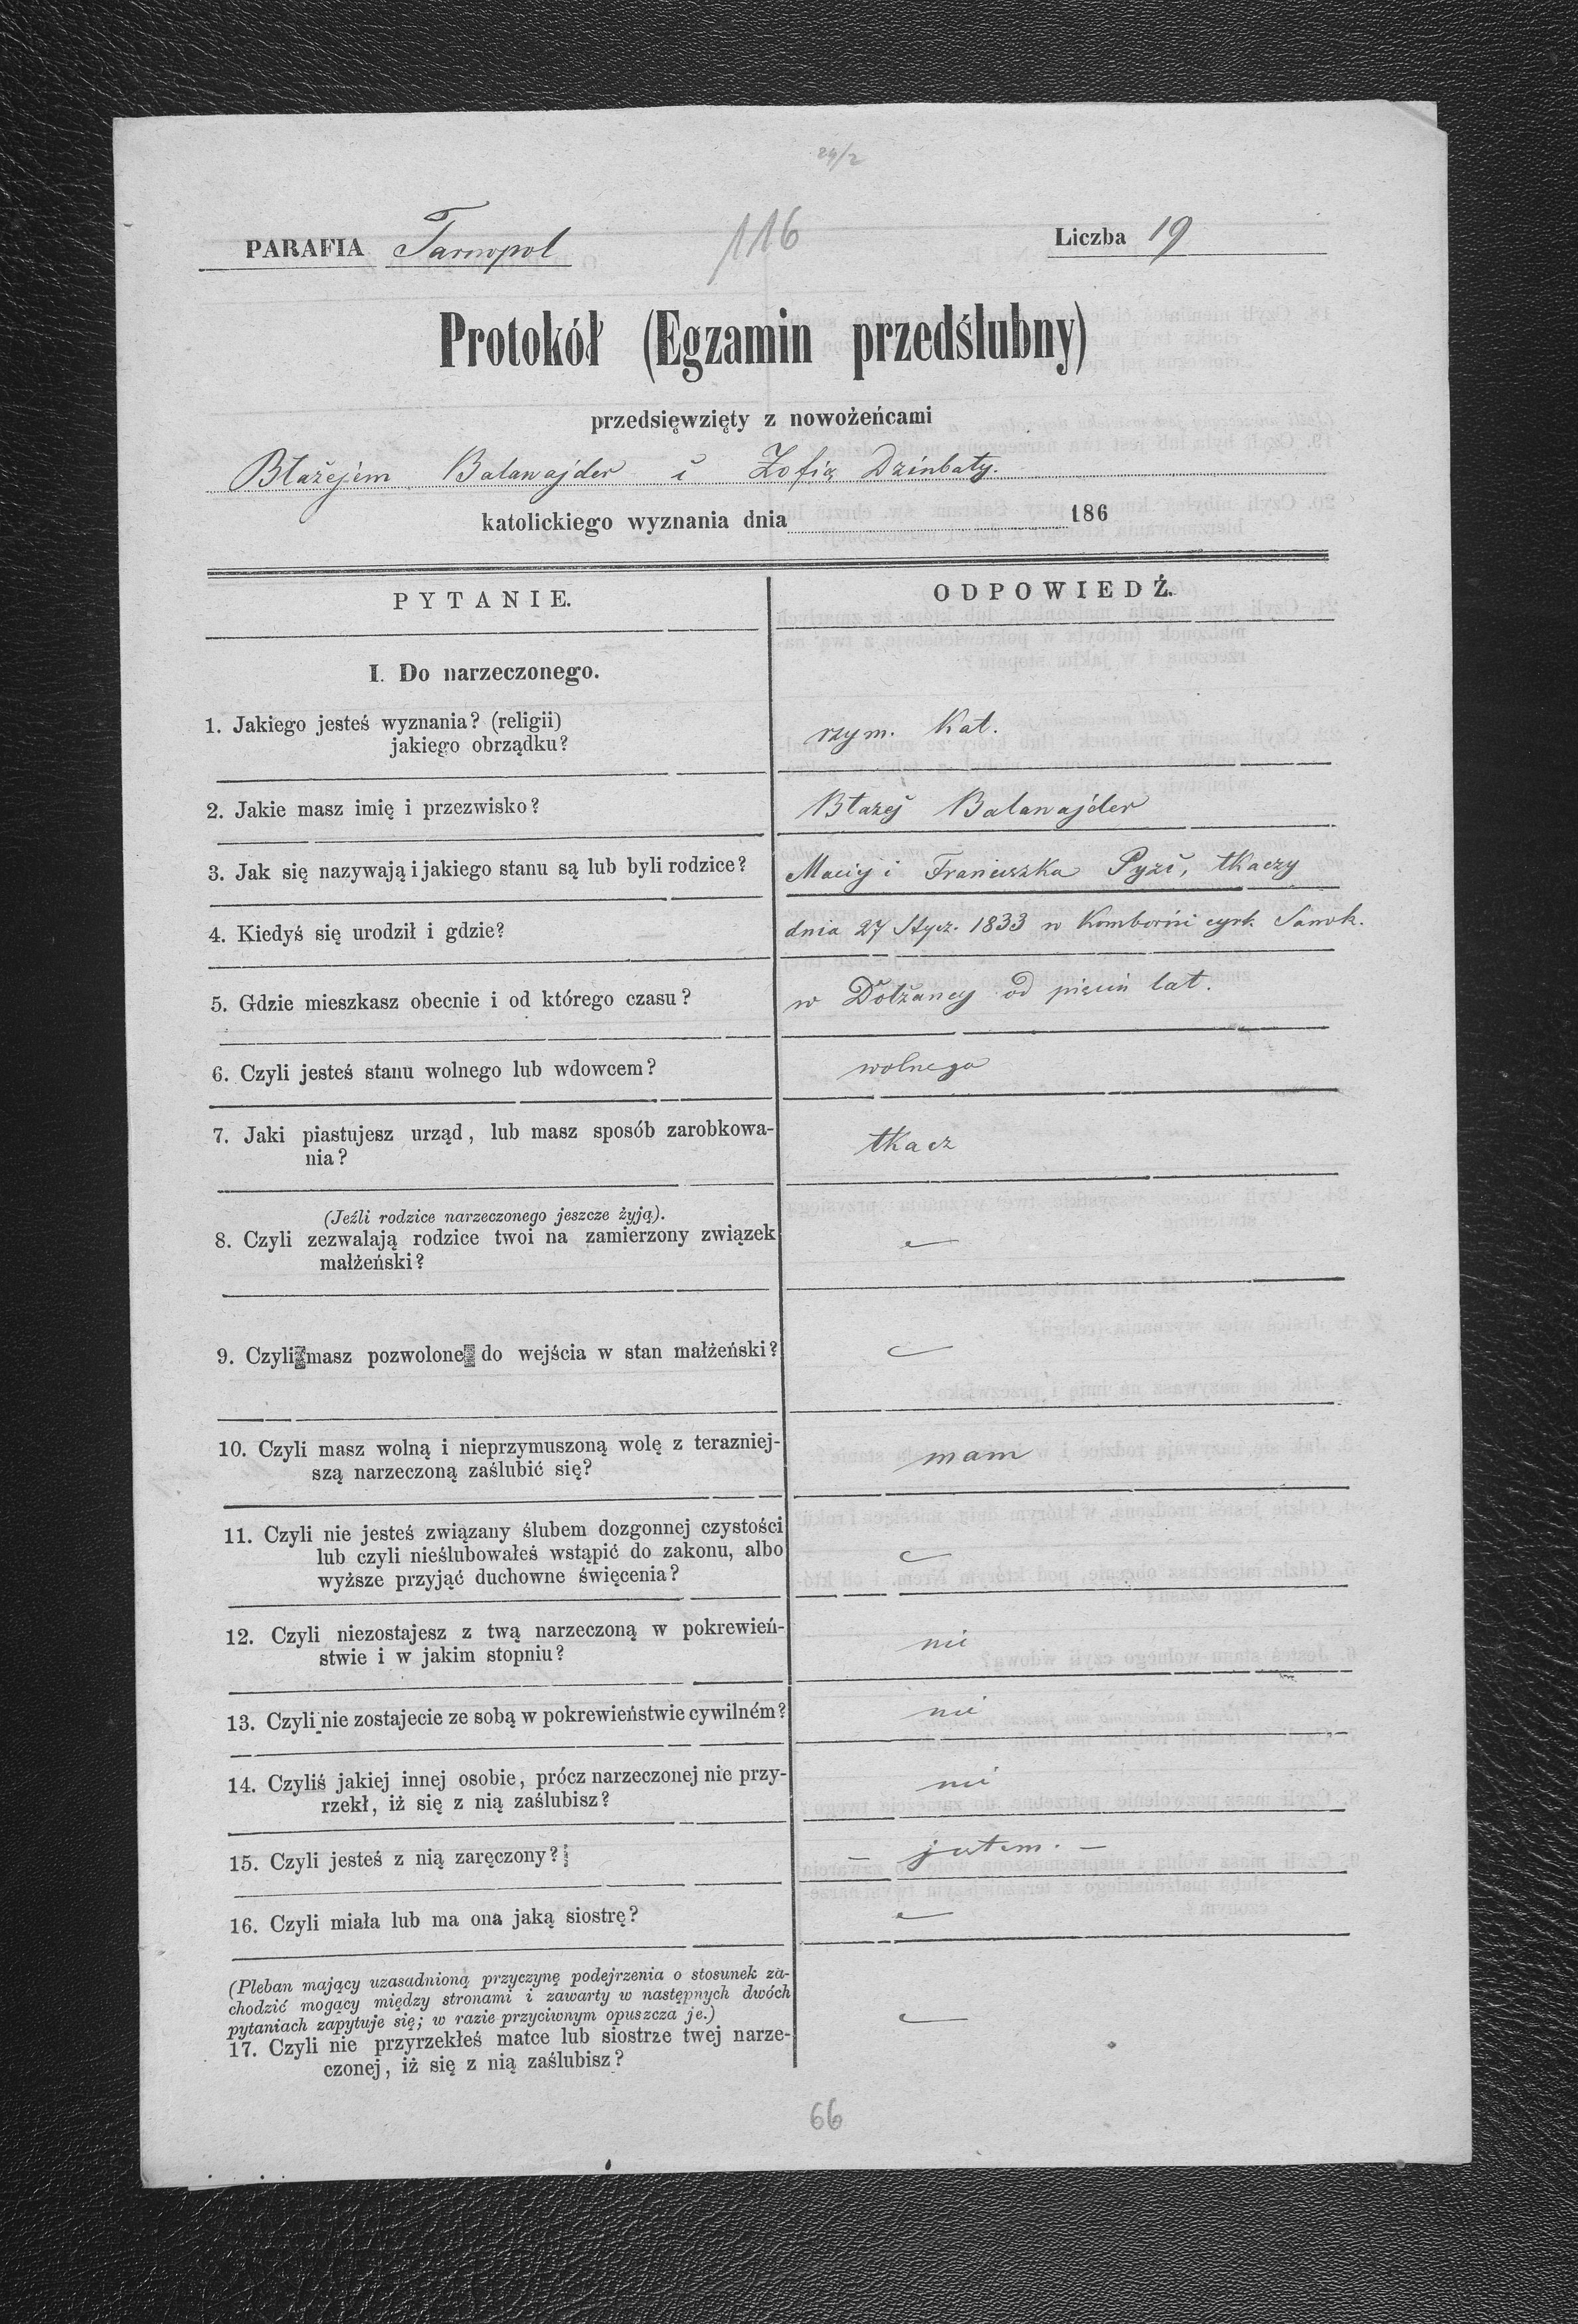 24/2
PARAFIA Tarnopol 116 Liczba 19
Protokół (Egzamin przedślubny)
przedsięwzięty z nowożeńcami
Błażejem Balawajder i Zofią Dzinbaty.
katolickiego wyznania dnia 186
PYTANIE. ODPOWIEDŹ.
I. Do narzeczonego.
1. Jakiego jesteś wyznania? (religii)
jakiego obrządku? rzym. Kat.
2. Jakie masz imię i przezwisko? Błażej Balawajder
3. Jak się nazywają i jakiego stanu są lub byli rodzice? Maciej i Franciszka Pyzi, tkaczy
4. Kiedyś się urodził i gdzie? dnia 27 Stycz. 1833 w Komborni cyrk. Sanok.
5. Gdzie mieszkasz obecnie i od którego czasu? w Dołżance od pięciu lat.
6. Czyli jesteś stanu wolnego lub wdowcem? wolnego
7. Jaki piastujesz urząd, lub masz sposób zarobkowa-
nia? tkacz
(Jeźli rodzice narzeczonego jeszcze żyją).
8. Czyli zezwalają rodzice twoi na zamierzony związek
małżeński?
9. Czyli masz pozwolone do wejścia w stan małżeński?
10. Czyli masz wolną i nieprzymuszoną wolę z terazniej-
szą narzeczoną zaślubić się? mam
11. Czyli nie jesteś związany ślubem dozgonnej czystości
lub czyli nieślubowałeś wstąpić do zakonu, albo
wyższe przyjąć duchowne święcenia?
12. Czyli niezostajesz z twą narzeczoną w pokrewień-
stwie i w jakim stopniu? nie
13. Czyli nie zostajecie ze sobą w pokrewieństwie cywilném? nie
14. Czyliś jakiej innej osobie, prócz narzeczonej nie przy-
rzekł, iż się z nią zaślubisz? nie
15. Czyli jesteś z nią zaręczony? – jestem. –
16. Czyli miała lub ma ona jaką siostrę?
(Pleban mający uzasadnioną przyczynę podejrzenia o stosunek za-
chodzić mogący między stronami i zawarty w następnych dwóch
pytaniach zapytuje się; w razie przyciwnym opuszcza je.)
17. Czyli nie przyrzekłeś matce lub siostrze twej narze-
czonej, iż się z nią zaślubisz?
66